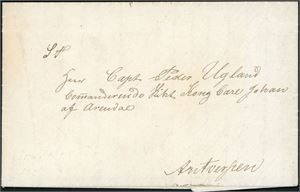 S.T.
Herr Capt Peder Ugland
Commanderende Skibet Kong Carl Johan
af Arendal
Antverpen